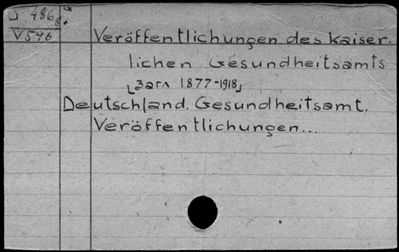 486
V546
Veröffentlichungen des Kaiser.
lichen Gesundheitsamts
1877-1918
Deutschland. Gesundheitsamt.
Veröffentlichungen...